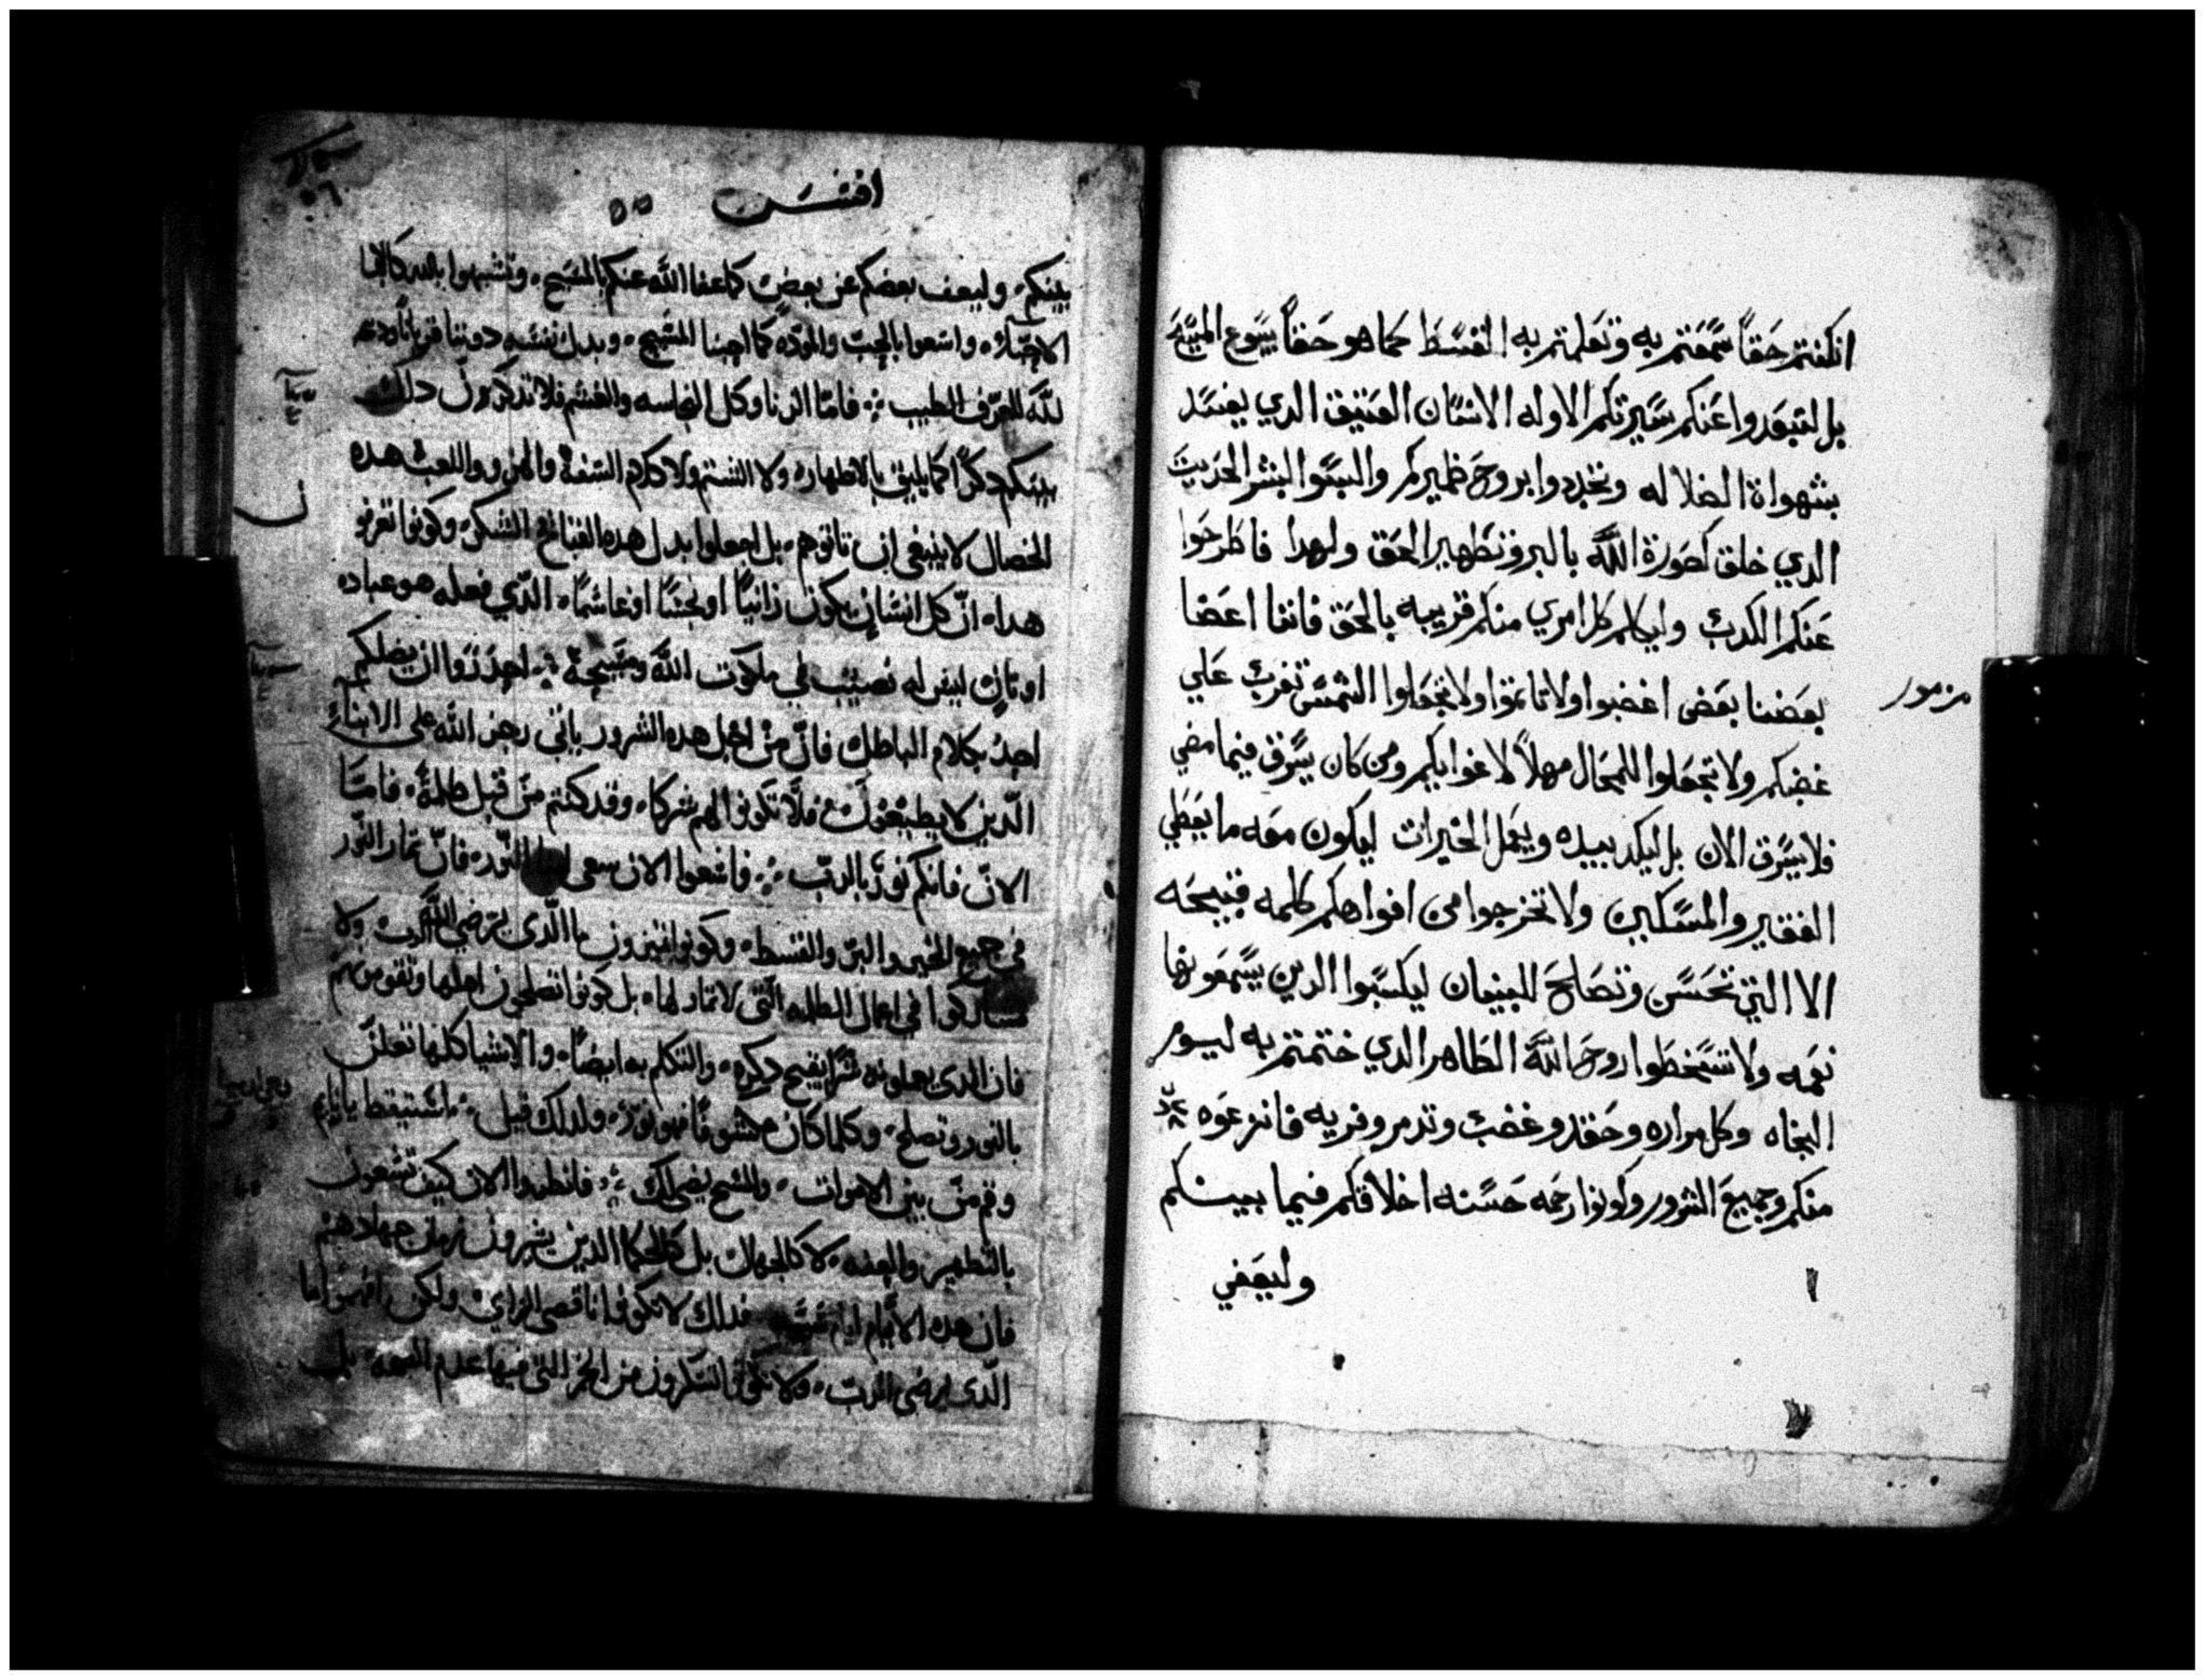 انكنتم حقاً سمعتم به وتعلمتم به القسط كما هو حقاً بيسوع المسيح
بل لتبعدوا عنكم سيرتكم الاوله الانسان العتيق الدي يفسد
بشهواة الضلاله وتجددوا بروح ظميركم والبسوا البشر الحديث
الدي خلق كصورة الله بالبر وتطهير الحق ولهدا فاطرحوا
عنكم الكدب وليكلم كل امري منكم قريبه بالحق فاننا اعضا
بعضنا بعض اغضبوا ولا تاتموا ولا تجعلوا الشمس تغرب علي
مزمور
غضبكم ولا تجعلوا للمحال مهلاً لاغوايكم ومن كان يسرق فيما مضي
فلا يسرق الان بل ليكد بيده ويعمل الخيرات ليكون معه ما يعطي
الفقير والمسكين ولا تخرجوا من افواهكم كلمه قبيحه
الا التي تحسن وتصلح للبنيان ليكسبوا الدين يسمعونها
نعمه ولا تسخطوا روح الله الطاهر الدي ختمتم به ليوم
النجاه وكل مراره وحقد وغضب وتدمر وفريه فانزعوه
منكم وجميع الشرور وكونوا رحمه حسنه اخلاقكم فيما بينكم
وليعفي
افسس ٥٥
٥٦
بينكم، وليعف بعضكم عن بعض كما عفا الله عنكم بالمسيح، وتشبهوا بالله كالابنا
الاحباء، واسعوا بالحب والموده كما احبنا المسيح، وبدل نفسه دوننا قرباناً ودبيحة
لله للعرف الطيب فامّا الزنا وكل النجاسه والغشم فلا تدكرون دلك
بينكم دكراً كما يليق بالاطهار، ولا الشتم ولا كلام السفه والهزو واللعب هده
الخصال لا ينبغي ان تاتوهم، بل اجعلوا بدل هده القبائح الشكر، وكونوا تعرفو
هداه انّ كل انسان يكون زانياً او نجساً او غاشماً، الدّي فعله هو عباده
اوتان ليس له نصيب في ملكوت الله ومسيحه احدروا ان يضلكم
احد بكلام الباطل فانّ من اجل هده الشرور ياتي رجز الله على الابناء
الّدين لا يطيعون فلا تكونوا لهم شركا، وقد كنتم من قبل ظلمة، فامّا
الانّ فانكم نور بالرب فاسعوا الان سعي النور، فانّ تمار النّور
في جميع الخير والبر والقسط، وكونوا تميزون ما الّدي يرضي الله ولا
تشاركوا في اعمال الظلمه الّتي لا تمار لها، بل كونوا
فان الدي يعملونه سرّاً يقبح دكره، والتكلم به ايضاً، والاشيا كلها تعلن
بالنور وتصلح، وكلما كان مكشوفاً فهو نور، ولدلك قيل استيقظ يا نايم
وقم من بين الاموات، والمسيح يضي لك فانظروا الان كيف تسعون
بالتطهير والعفه، لا كالجهال بل كالحكما الدين يشترون زمان جهادهم
فان هده الايّام ايام فدلك لا تكونوا ناقصي الراي، ولكن افهموا ما
الّدي يرضي الرب، ولا تكونوا تسكرون من الخمر التي فيها عدم بل